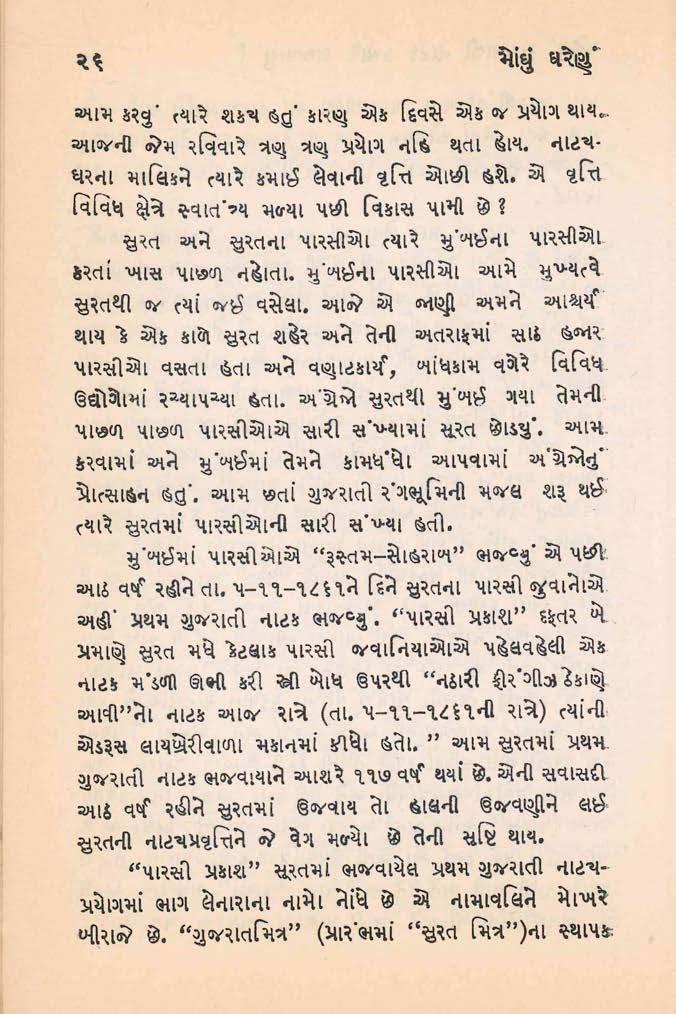 ૨૬ મોંઘું ઘરેણું
આમ કરવું ત્યારે શકય હતું કારણ એક દિવસે એક જ પ્રયોગ થાય.
આજની જેમ રવિવારે ત્રણ ત્રણ પ્રયોગ નહિ થતા હોય. નાટય-
ઘરના માલિકને ત્યારે કમાઈ લેવાની વૃત્તિ ઓછી હશે. એ વૃત્તિ
વિવિધ ક્ષેત્રે સ્વાતંત્ર્ય મળ્યા પછી વિકાસ પામી છે ?
સુરત અને સુરતના પારસીઓ ત્યારે મુંબઈના પારસીઓ
કરતાં ખાસ પાછળ નહોતા. મુંબઈના પારસીઓ આમે મુખ્યત્વે
સુરતથી જ ત્યાં જઈ વસેલા. આજે એ જાણી અમને આશ્ચર્ય
થાય કે એક કાળે સુરત શહેર અને તેની અતરાફમાં સાઠ હજાર
પારસીઓ વસતા હતા અને વણાટકાર્ય, બાંધકામ વગેરે વિવિધ
ઉદ્યોગોમાં રચ્યાપચ્યા હતા. અંગ્રેજો સુરતથી મુંબઈ ગયા તેમની
પાછળ પાછળ પારસીઓએ સારી સંખ્યામાં સૂરત છોડયું. આમ
કરવામાં અને મુંબઈમાં તેમને કામધંધો આપવામાં અંગ્રેજોનું
પ્રોત્સાહન હતું. આમ છતાં ગુજરાતી રંગભૂમિની મજલ શરૂ થઈ
ત્યારે સુરતમાં પારસીઓની સારી સંખ્યા હતી.
મુંબઈમાં પારસીઓએ “રૂસ્તમ-સોહરાબ” ભજવ્યું એ પછી
આઠ વર્ષ રહીને તા. ૫-૧૧-૧૮૬૧ને દિને સુરતના પારસી જુવાનોએ
અહીં પ્રથમ ગુજરાતી નાટક ભજવ્યું. “પારસી પ્રકાશ” દફતર બે
પ્રમાણે સુરત મધે કેટલાક પારસી જવાનિયાઓએ પહેલવહેલી એક
નાટક મંડળી ઊભી કરી સ્ત્રી બોધ ઉપરથી “નઠારી ફીરંગીઝ ઠેકાણે
આવી”નો નાટક આજ રાત્રે (તા. ૫-૧૧-૧૮૬૧ની રાત્રે) ત્યાંની
એડરૂસ લાયબ્રેરીવાળા મકાનમાં કીધો હતો. ” આમ સુરતમાં પ્રથમ
ગુજરાતી નાટક ભજવાયાને આશરે ૧૧૭ વર્ષ થયાં છે. એની સવાસદી
આઠ વર્ષ રહીને સુરતમાં ઉજવાય તો હાલની ઉજવણીને લઈ
સુરતની નાટચપ્રવૃત્તિને જે વેગ મળ્યો છે તેની સૃષ્ટિ થાય.
“પારસી પ્રકાશ” સૂરતમાં ભજવાયેલ પ્રથમ ગુજરાતી નાટય-
પ્રયોગમાં ભાગ લેનારાના નામો નોંધે છે એ નામાવલિને મોખરે
બીરાજે છે. “ગુજરાતમિત્ર” (પ્રારંભમાં “સુરત મિત્ર”)ના સ્થાપક